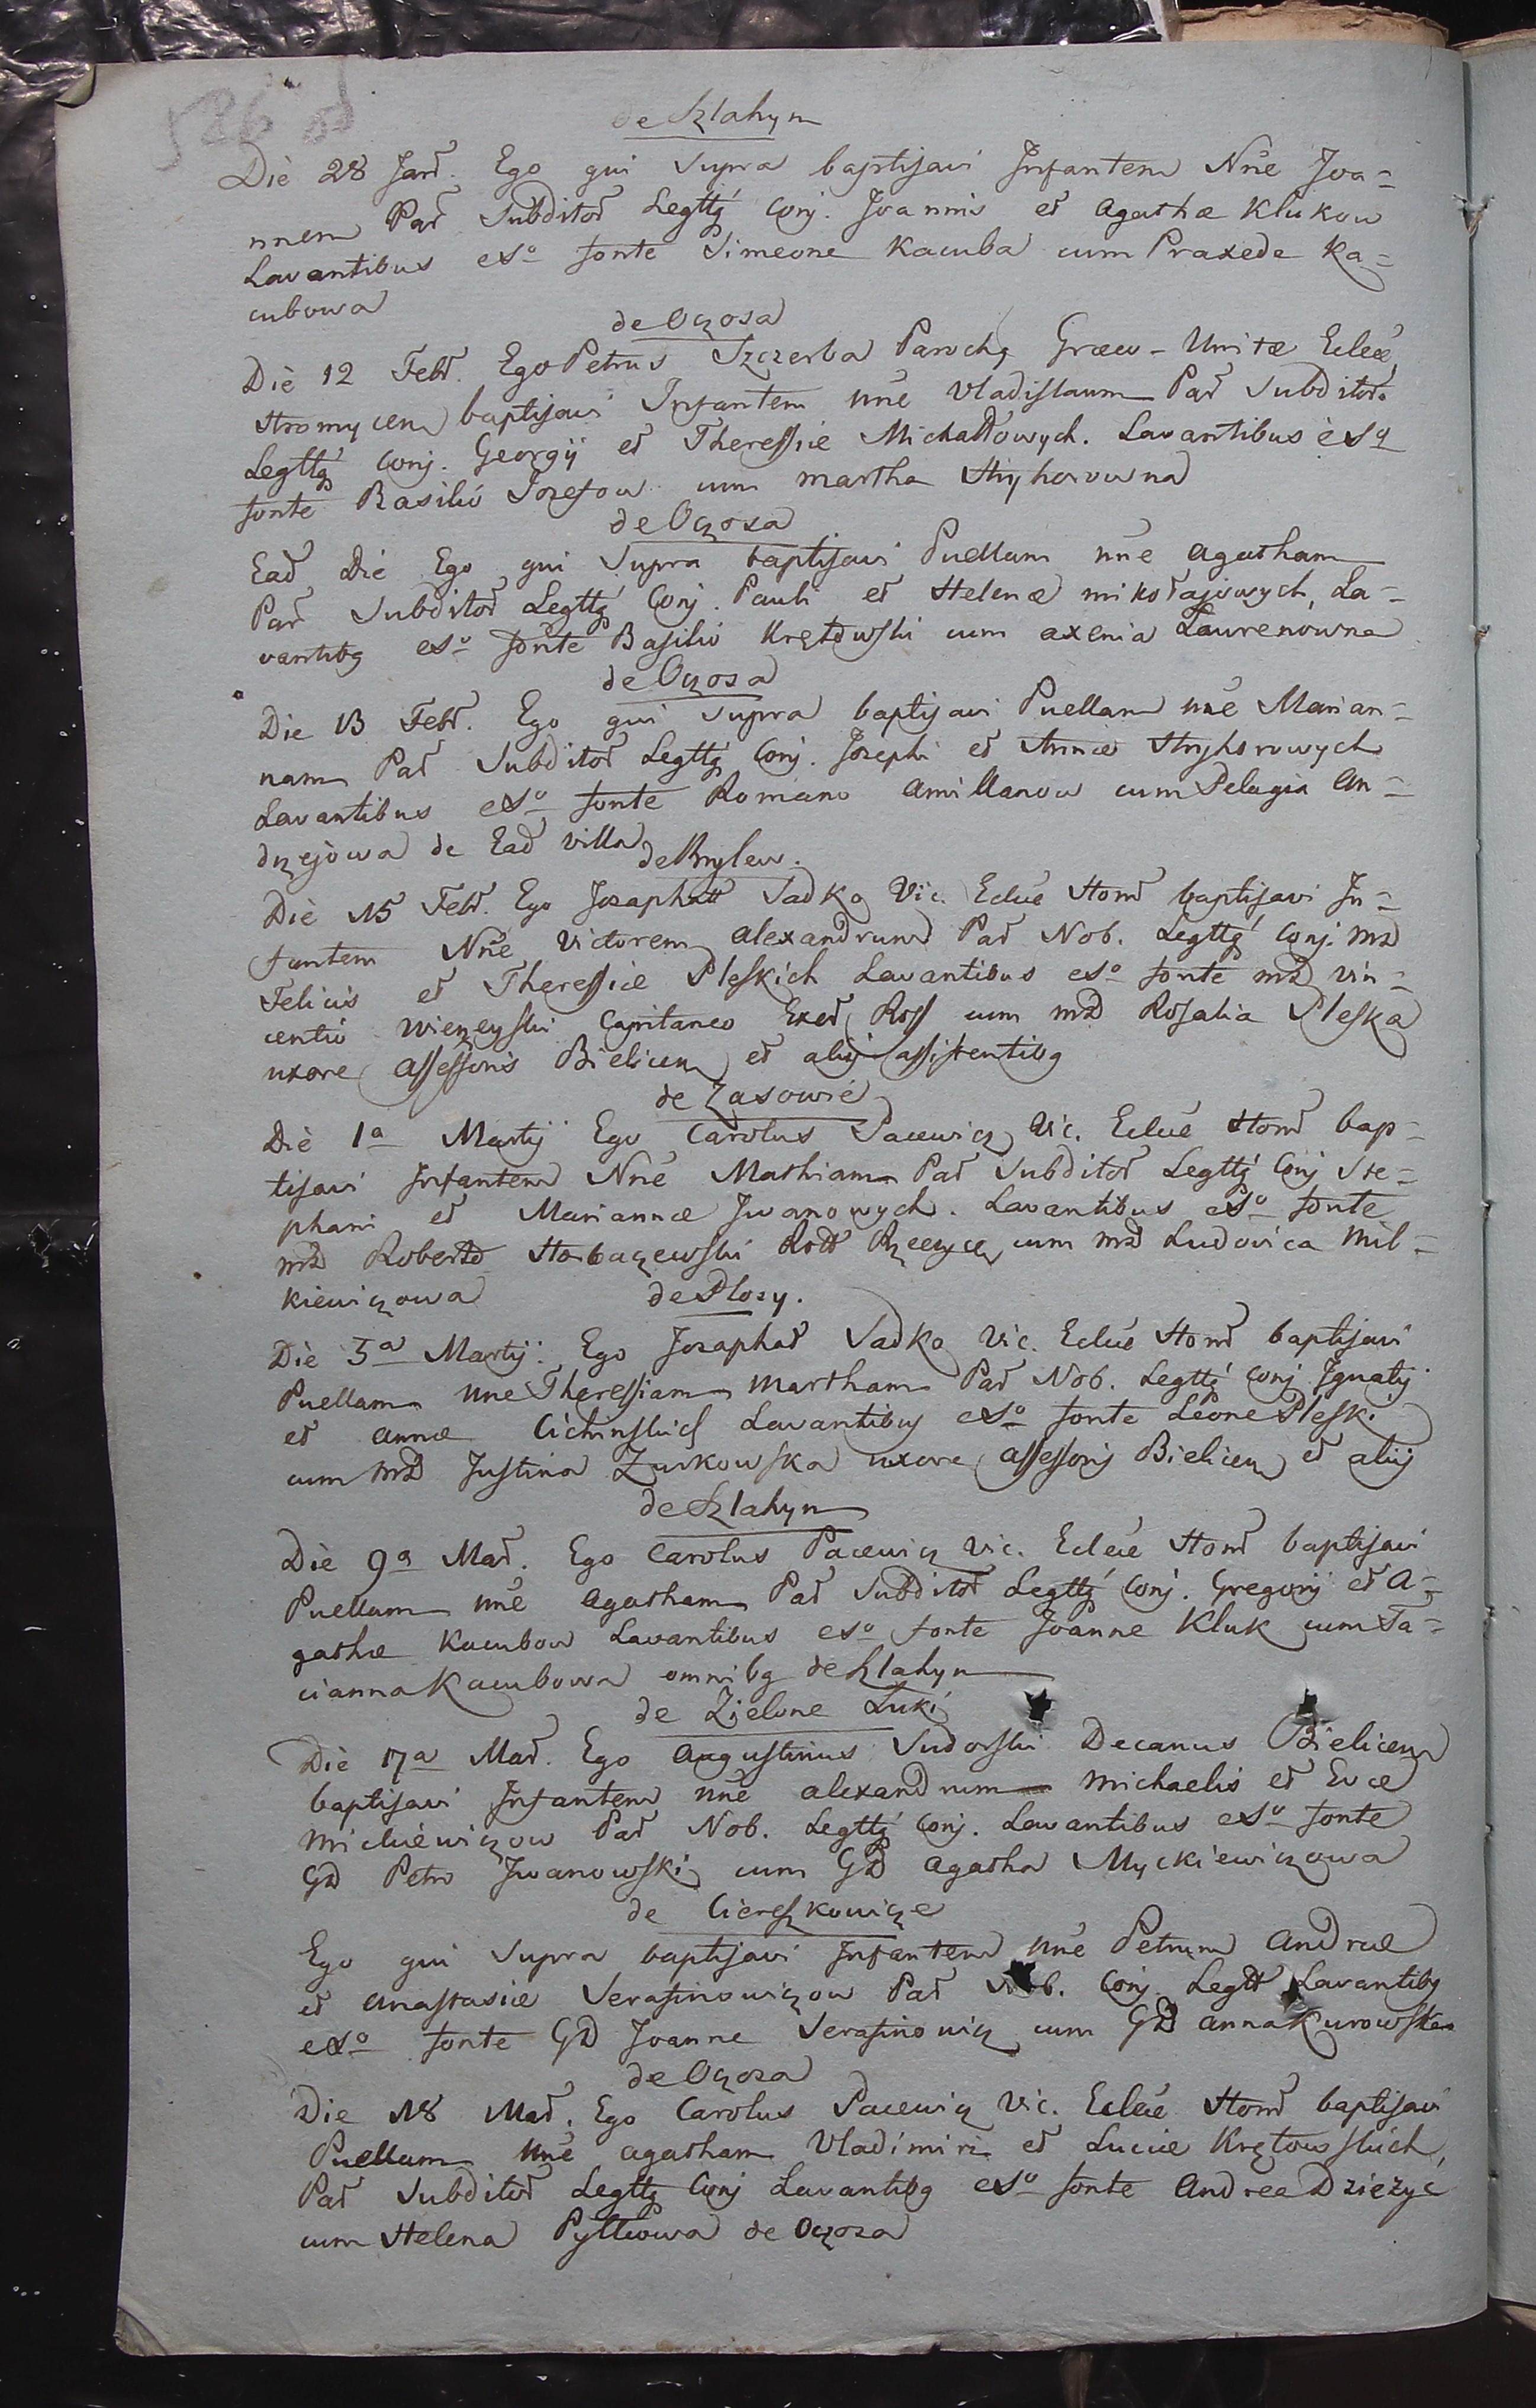 526 od
de Szlahyn
Die 28 Janr. Ego qui supra baptisavi Infantem Nne Joa=
nnem Par Subditor Legttq Conj. Joannis et Agathæ Klukow
Lavantibus exSo fonte Simeone Kacuba cum Praxede Ka=
cubowa
de Oczosa
Die 12 Febr. Ego Petrus Szczerba Parochq Græco-Unitæ Eclæe
baptisavi Infantem nne Vladislaum Par Subditor
Legttq Conj. Georgij et Theressiæ Michałłowych. Lavantibus exSo
fonte Basilio Jozefow cum Martha Hryhorowna
de Oczosa
Ead Die Ego qui supra baptisavi Puellam nne Agatham
Par Subditor Legttq Conj. Pauli et Helenæ Mikołajowych, La=
vantibq exSo fonte Basilio Krętowski cum Axenia Laurenowna
de Oczosa
Die 13 Febr. Ego qui supra baptisavi Puellam nne Marian=
nam Par Subditor Legttq Conj. Josephi et Annæ Hryhorowych
Lavantibus exSo fonte Romano Amillanow cum Pelagia An=
drzejowa de Ead villa
de Brylew.
Die 15 Febr. Ego Josaphatt Sadko Vic. Eclæe Hom baptisavi In=
fantem Nne Victorem Alexandrum Par Nob. Legttq Conj. MD
Felicis et Theressiæ Pleskich Lavantibus exSo fonte MD Vin=
centio Capitaneo Exer Ross cum MD Rosalia Pleska
uxore Assessoris Bielicen et alijs assistentibq
de Zasowie
Die 1a Martij Ego Carolus Pacewicz Vic. Eclæe Hom bap=
tisavi Infantem Nne Mathiam Par Subditor Legttq Conj Ste=
phani et Mariannæ Iwanowych. Lavantibus exSo fonte
MD Roberto Horbaczewski Rott Rzeczyce cum MD Ludovica Mil=
kiewiczowa
de Plosy.
Die 5a Martij. Ego Josaphat Sadko Vic. Eclæe Hom baptisavi
Puellam nne Theressiam Martham Par Nob. Legttq Conj Ignatij
et Annæ Cichinskich Lavantibus exSo fonte Leone Pleski
cum MD Justina Zurkowska uxore Assessoris Bielicen et alijs
de Szlahyn
Die 9a Mar. Ego Carolus Pacewicz Vic. Eclæe Hom baptisavi
Puellam nne Agatham Par Subditor Legttq Conj. Gregorij et A=
gathæ Kacubow Lavantibus exSo fonte Joanne Kluk cum Ta=
cianna Kacubowa omnibq de Szlahyn
de Zielone Łuki
Die 17a Mar. Ego Augustinus Sudorski Decanus Bielicen
baptisavi Infantem nne Alexandrum Michaelis et Evæ
Mickiewiczow Par Nob. Legttq Conj. Lavantibus exSo fonte
GD Petro Iwanowski cum GD Agatha Myckiewiczowa
de Ciereszkowicze
Ego qui supra baptisavi Infantem nne Petrum Andreæ
et Anastasiæ Serafinowiczow Par Nob. Conj Legtt Lavantibq
exSo fonte GD Joanne Serafinowicz cum GD Anna Kurowska
de Oczosa
Die 18 Mar. Ego Carolus Pacewicz Vic. Eclæe Hom baptisavi
Puellam nne Agatham Vladimiri et Luciæ Krętowskich,
Par Subditor Legttq Conj Lavantibq exSo fonte Andrea Dzieżyc
cum Helena Pyltowa de Oczosa